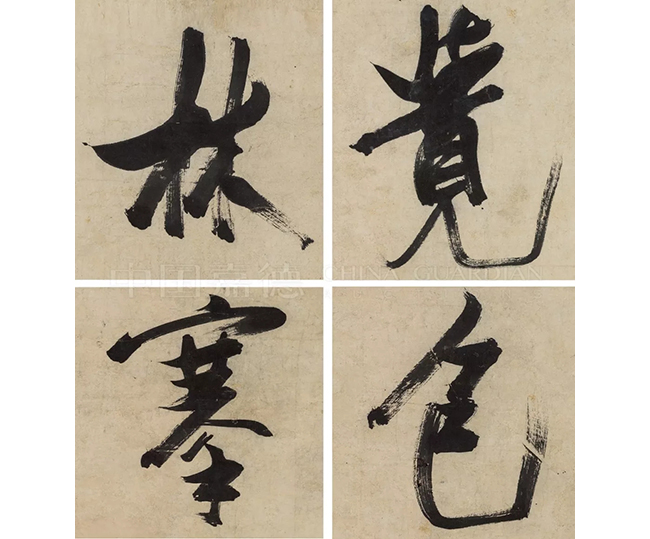 林 覽
中国嘉德 CHINA GUARDIAN
搴 色